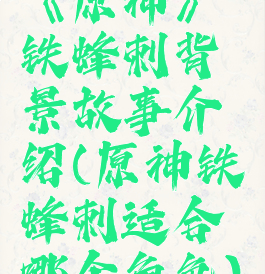 《原神》
铁蜂刺背
景故事介
绍(原神铁
蜂刺适合
哪个角色)